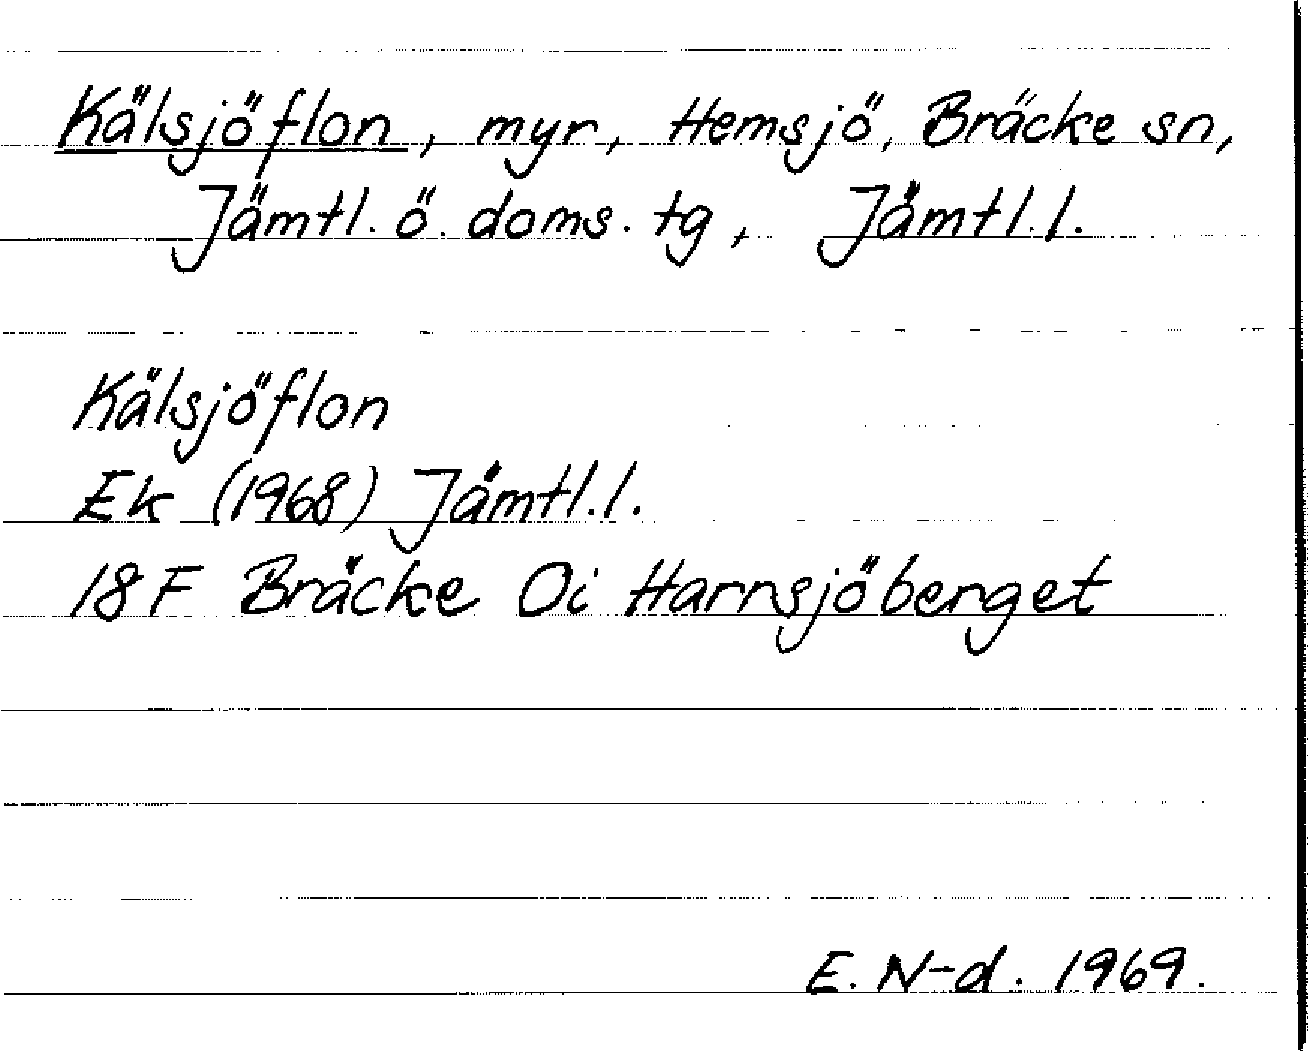 Kälsjöflon, myr, Hemsjö, Bräcke sn,
Jämtl. ö. doms. tg, Jämtl. l.
Kälsjöflon
Ek (1968) Jämtl. l.
18 F Bräcke Oi Harrsjöberget
E. N-d. 1969.